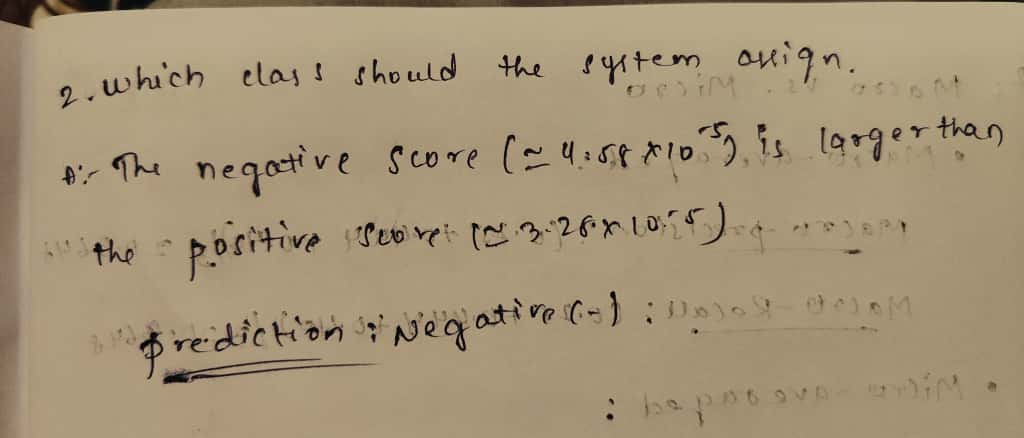 2. which class should the system assign.
A:- The negative score (≃ 4.58 × 10⁻⁵) is larger than
the positive score (≃ 3.28 × 10⁻⁵)
prediction : Negative (-) :